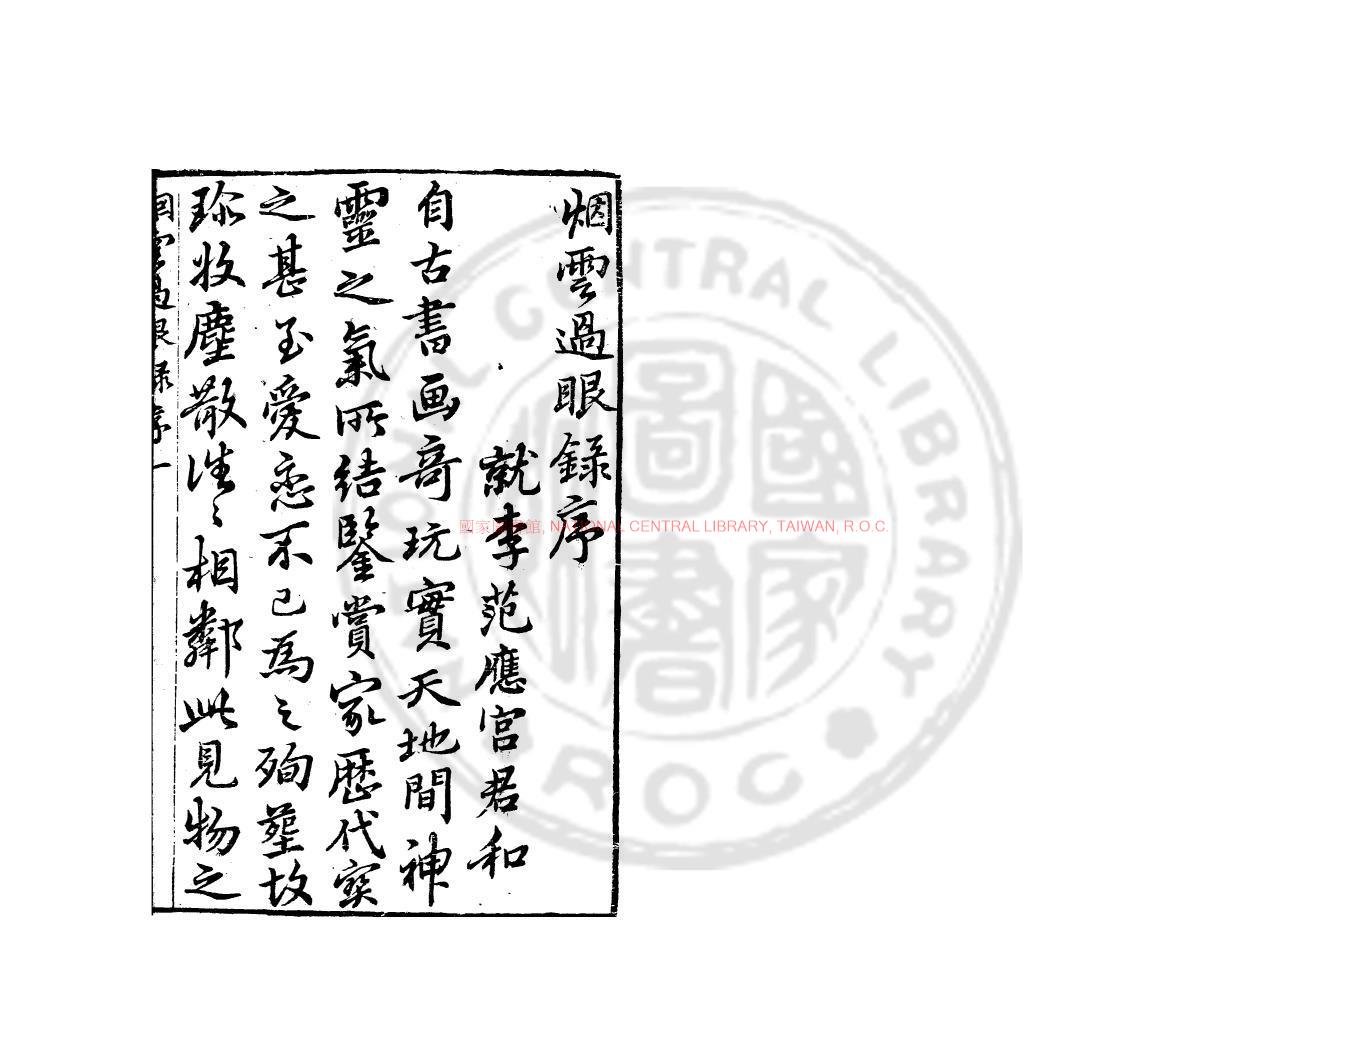 烟雲過眼錄序
就李范應宮君和
自古書画竒玩實天地間神
靈之氣所結鑒賞家歷代寳
之甚至愛恋不已為之殉塟故
珎收塵散徃〻相鄰此見物之
烟雲過眼録序一
國家圖書館, NATIONAL CENTRAL LIBRARY, TAIWAN, R.O.C.
NATIONAL CENTRAL LIBRARY
ROC
國家圖書